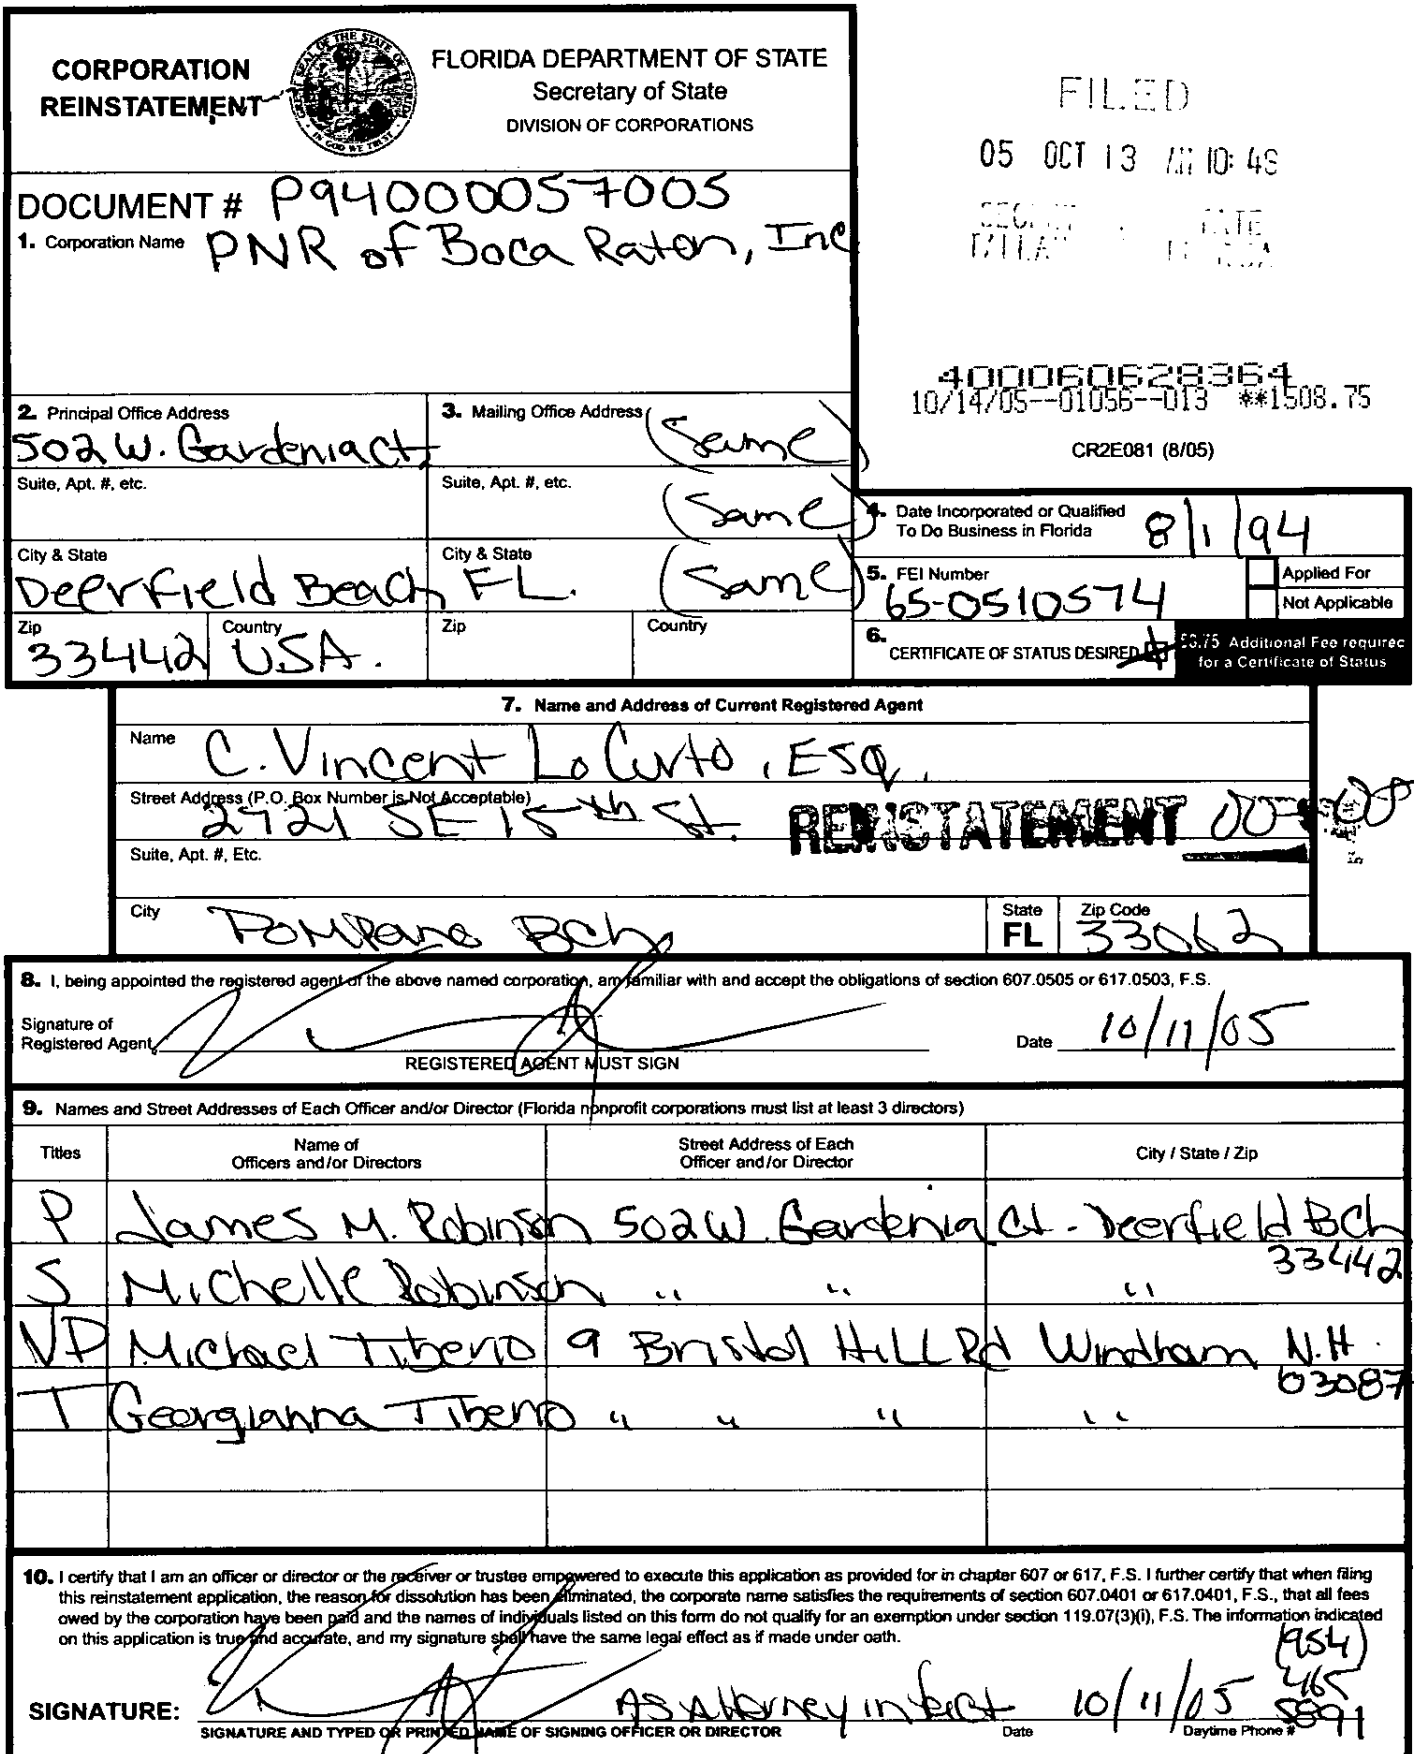 CORPORATION
REINSTATEMENT
FLORIDA DEPARTMENT OF STATE
Secretary of State
DIVISION OF CORPORATIONS
FILED
05 OCT 13 AM 10: 48
DOCUMENT # P94000057005
1. Corporation Name PNR of Boca Raton, Inc
400060628364
10/14/05--01056--013 **1508.75
CR2E081 (8/05)
2. Principal Office Address
502 W. Gardenia Ct.
3. Mailing Office Address (Same)
Suite, Apt. #, etc.
Suite, Apt. #, etc. (Same)
City & State
Deerfield Beach, FL.
City & State (Same)
Zip 33442
Country USA.
Zip
Country
4. Date Incorporated or Qualified
To Do Business in Florida 8/1/94
5. FEI Number
65-0510574
Applied For
Not Applicable
6. CERTIFICATE OF STATUS DESIRED
$8.75 Additional Fee required
for a Certificate of Status
7. Name and Address of Current Registered Agent
Name C. Vincent LoCurto, ESQ.
Street Address (P.O. Box Number is Not Acceptable)
2921 SE 15th St.
REINSTATEMENT
Suite, Apt. #, Etc.
City Pompano BCh
State FL
Zip Code 33062
8. I, being appointed the registered agent of the above named corporation, am familiar with and accept the obligations of section 607.0505 or 617.0503, F.S.
Signature of
Registered Agent
Date 10/11/05
REGISTERED AGENT MUST SIGN
9. Names and Street Addresses of Each Officer and/or Director (Florida nonprofit corporations must list at least 3 directors)
Titles
Name of
Officers and/or Directors
Street Address of Each
Officer and/or Director
City / State / Zip
P James M. Robinson 502 W. Gardenia Ct - Deerfield BCh
33442
S Michelle Robinson " " "
VP Michael Tiberio 9 Bristol Hill Rd Windham N.H.
03087
T Georgianna Tiberio " " " "
10. I certify that I am an officer or director or the receiver or trustee empowered to execute this application as provided for in chapter 607 or 617, F.S. I further certify that when filing
this reinstatement application, the reason for dissolution has been eliminated, the corporate name satisfies the requirements of section 607.0401 or 617.0401, F.S., that all fees
owed by the corporation have been paid and the names of individuals listed on this form do not qualify for an exemption under section 119.07(3)(i), F.S. The information indicated
on this application is true and accurate, and my signature shall have the same legal effect as if made under oath.
(954)
465
5891
SIGNATURE: As Attorney in fact 10/11/05
SIGNATURE AND TYPED OR PRINTED NAME OF SIGNING OFFICER OR DIRECTOR
Date
Daytime Phone #